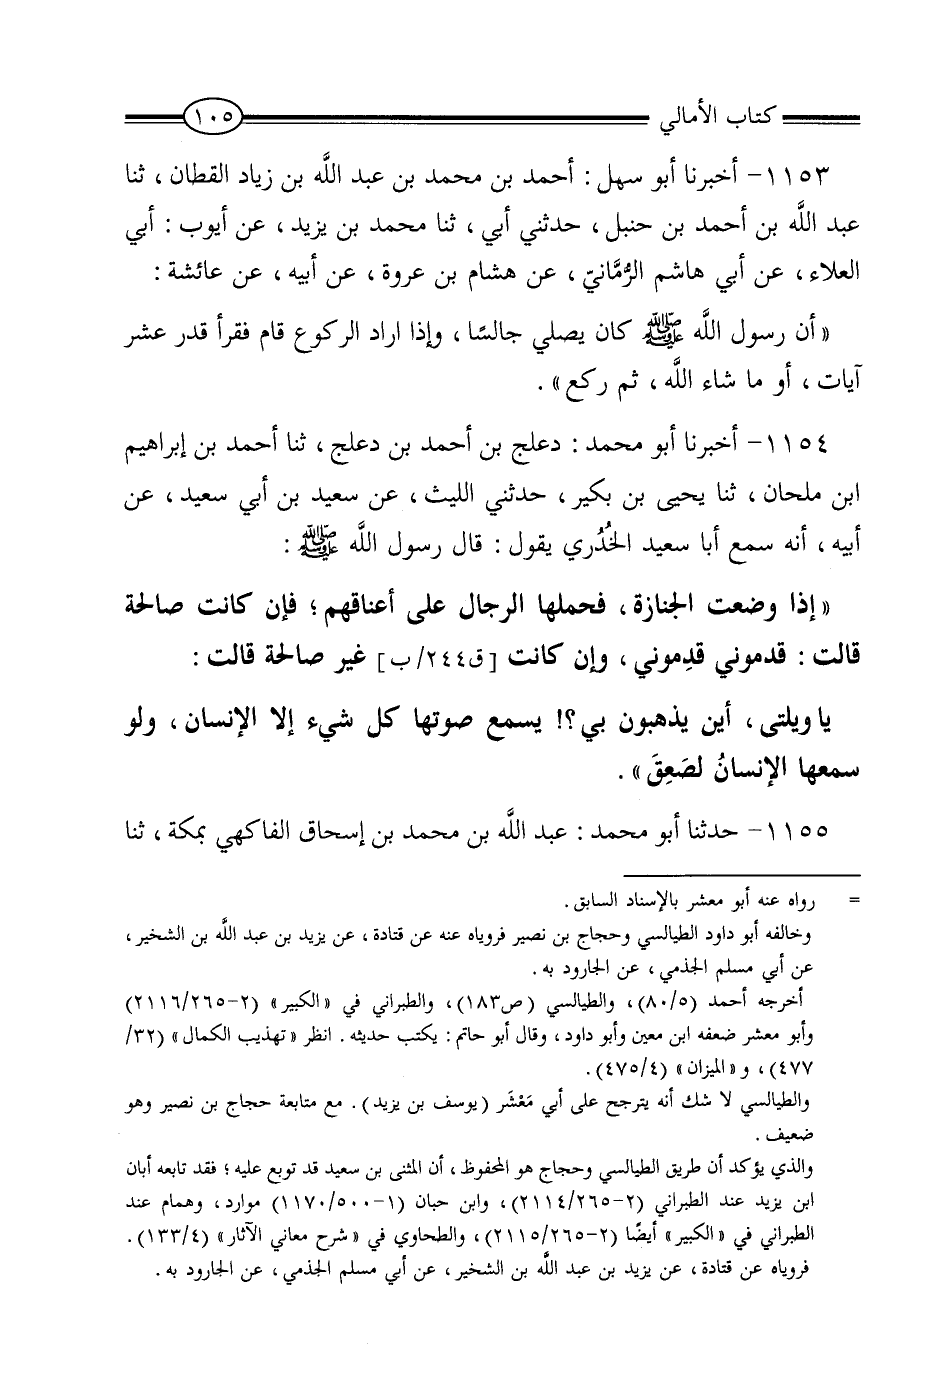 كتاب الأمالي ١٠٥
١١٥٣- أخبرنا أبو سهل : أحمد بن محمد بن عبد اللَّه بن زياد القطان ، ثنا
عبد اللَّه بن أحمد بن حنبل ، حدثني أبي ، ثنا محمد بن يزيد ، عن أيوب : أبي
العلاء ، عن أبي هاشم الرُّمَّانيّ ، عن هشام بن عروة ، عن أبيه ، عن عائشة :
« أن رسول اللَّه ﷺ كان يصلي جالسًا ، وإذا اراد الركوع قام فقرأ قدر عشر
آيات ، أو ما شاء اللَّه ، ثم ركع » .
١١٥٤- أخبرنا أبو محمد : دعلج بن أحمد بن دعلج ، ثنا أحمد بن إبراهيم
ابن ملحان ، ثنا يحيى بن بكير ، حدثني الليث ، عن سعيد بن أبي سعيد ، عن
أبيه ، أنه سمع أبا سعيد الخُدُري يقول : قال رسول اللَّه ﷺ :
« إذا وضعت الجنازة ، فحملها الرجال على أعناقهم ؛ فإن كانت صالحة
قالت : قدموني قدِموني ، وإن كانت [ ق٢٤٤/ب ] غير صالحة قالت :
يا ويلتى ، أين يذهبون بي ؟! يسمع صوتها كل شيء إلا الإنسان ، ولو
سمعها الإنسانُ لصَعِقَ » .
١١٥٥- حدثنا أبو محمد : عبد اللَّه بن محمد بن إسحاق الفاكهي بمكة ، ثنا
= رواه عنه أبو معشر بالإسناد السابق .
وخالفه أبو داود الطيالسي وحجاج بن نصير فروياه عنه عن قتادة ، عن يزيد بن عبد اللَّه بن الشخير ،
عن أبي مسلم الجذمي ، عن الجارود به .
أخرجه أحمد (٨٠/٥)، والطيالسي (ص١٨٣)، والطبراني في « الكبير » (٢-٢١١٦/٢٦٥)
وأبو معشر ضعفه ابن معين وأبو داود ، وقال أبو حاتم : يكتب حديثه . انظر « تهذيب الكمال » (٣٢/
٤٧٧) ، و « الميزان » (٤٧٥/٤) .
والطيالسي لا شك أنه يترجح على أبي مَعْشَر ( يوسف بن يزيد ) . مع متابعة حجاج بن نصير وهو
ضعيف .
والذي يؤكد أن طريق الطيالسي وحجاج هو المحفوظ ، أن المثنى بن سعيد قد توبع عليه ؛ فقد تابعه أبان
ابن يزيد عند الطبراني (٢-٢١١٤/٢٦٥)، وابن حبان (١-١١٧٠/٥٠٠) موارد ، وهمام عند
الطبراني في « الكبير » أيضًا (٢-٢١١٥/٢٦٥)، والطحاوي في « شرح معاني الآثار » (١٣٣/٤) .
فروياه عن قتادة ، عن يزيد بن عبد اللَّه بن الشخير ، عن أبي مسلم الجذمي ، عن الجارود به .